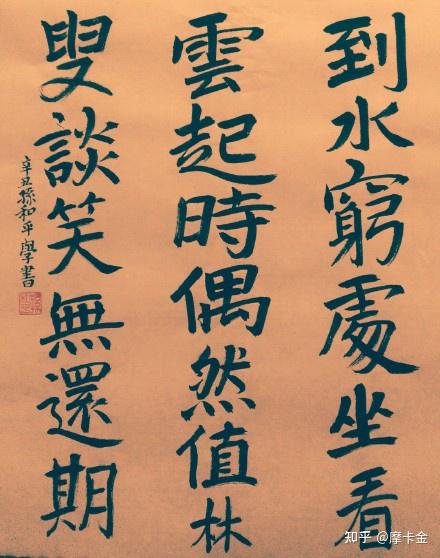 到水窮處坐看
雲起時偶然值林
叟談笑無還期
辛丑孫和平學書
知乎 @摩卡金